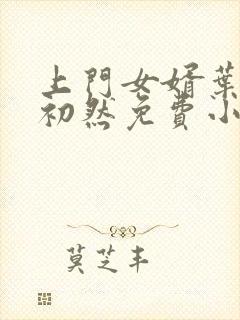 上門女婿葉
初然免費小
莫芝丰